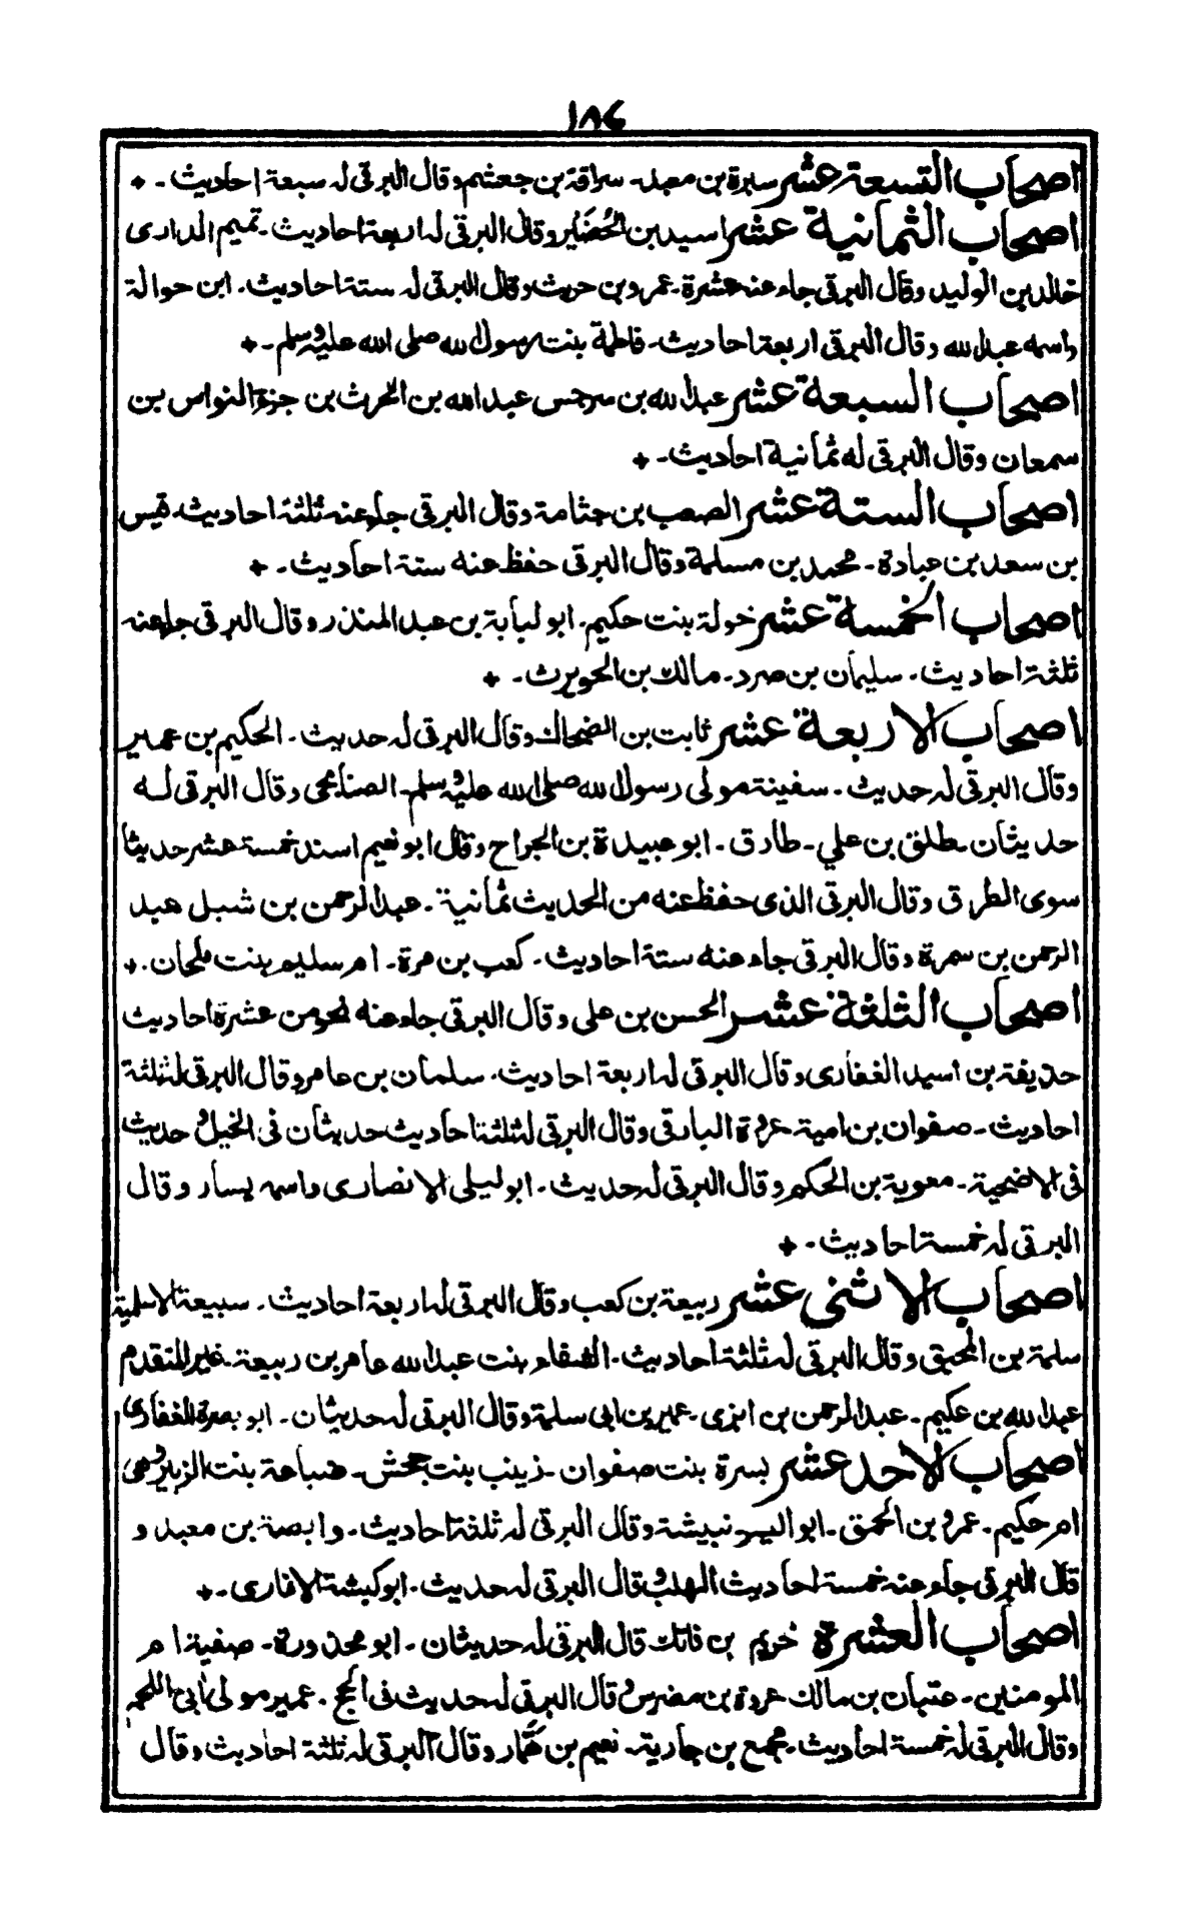 ١٨٦
اصحاب التسعة عشر سبرة بن معبد۔ سراقة بن جعشم وقال البرقى له سبعة احاديث۔ +
اصحاب الثمانية عشر اسيد بن الحُضَير وقال البرقى له اربعة احاديث۔ تميم الدارى
خالد بن الوليد وقال البرقى جاء عنه عشرة۔ عمرو بن حريث وقال البرقى له ستة احاديث۔ ابن حوالة
واسمه عبد الله وقال البرقى اربعة احاديث۔ فاطمة بنت رسول الله صلى الله عليه وسلم۔ +
اصحاب السبعة عشر عبد الله بن سرجس عبد الله بن الحرث بن جزء النواس بن
سمعان وقال البرقى له ثمانية احاديث۔ +
اصحاب الستة عشر الصعب بن جثامة وقال البرقى جاء عنه ثلثة احاديث۔ قيس
بن سعد بن عبادة۔ محمد بن مسلمة وقال البرقى حفظ عنه ستة احاديث۔ +
اصحاب الخمسة عشر خولة بنت حكيم۔ ابو لبابة بن عبد المنذر وقال البرقى جاء عنه
ثلثة احاديث۔ سليمان بن صرد۔ مالك بن الحويرث۔ +
اصحاب الاربعة عشر ثابت بن الضحاك وقال البرقى له حديث۔ الحكيم بن عمير
وقال البرقى له حديث۔ سفينة مولى رسول الله صلى الله عليه وسلم۔ الصنابحى وقال البرقى له
حديثان۔ طلق بن علي۔ طارق۔ ابو عبيدة بن الجراح وقال ابو نعيم اسند خمسة عشر حديثا
سوى الطرق وقال البرقى الذى حفظ عنه من الحديث ثمانية۔ عبد الرحمن بن شبل عبد
الرحمن بن سمرة وقال البرقى جاء عنه ستة احاديث۔ كعب بن مرة۔ ام سليم بنت ملحان۔ +
اصحاب الثلثة عشر الحسن بن على وقال البرقى جاء عنه نحو من عشرة احاديث
حذيفة بن اسيد الغفارى وقال البرقى له اربعة احاديث۔ سلمان بن عامر وقال البرقى له ثلثة
احاديث۔ صفوان بن امية عروة البارقى وقال البرقى له ثلثة احاديث حديثان فى الخيل وحديث
فى الاضحية۔ معوية بن الحكم وقال البرقى له حديث۔ ابو ليلى الانصارى واسمه يسار وقال
البرقى له خمسة احاديث۔ +
اصحاب الاثنى عشر ربيعة بن كعب وقال البرقى له اربعة احاديث۔ سبيعة الاسلمية
سلمة بن المحبق وقال البرقى له ثلثة احاديث۔ الشفاء بنت عبد الله عامر بن ربيعة۔ غير المتقدم
عبد الله بن عكيم۔ عبد الرحمن بن ابزى۔ عمير بن ابى سلمة وقال البرقى له حديثان۔ ابو بصرة الغفارى
اصحاب الاحد عشر بسرة بنت صفوان۔ زينب بنت جحش۔ ضباعة بنت الزبير وهى
ام حكيم۔ عمرو بن الحمق۔ ابو اليسر نبيشة وقال البرقى له ثلثة احاديث۔ وابصة بن معبد و
قال البرقى جاء عنه خمسة احاديث الهلب وقال البرقى له حديث۔ ابو كبشة الانارى۔ +
اصحاب العشرة خريم بن فاتك قال البرقى له حديثان۔ ابو محذورة۔ صفية ام
المومنين۔ عتبان بن مالك عروة بن مضرس وقال البرقى له حديث فى الحج۔ عمير مولى ابى اللحم
وقال البرقى له خمسة احاديث۔ مجمع بن جارية۔ نعيم بن همار وقال البرقى له ثلثة احاديث وقال